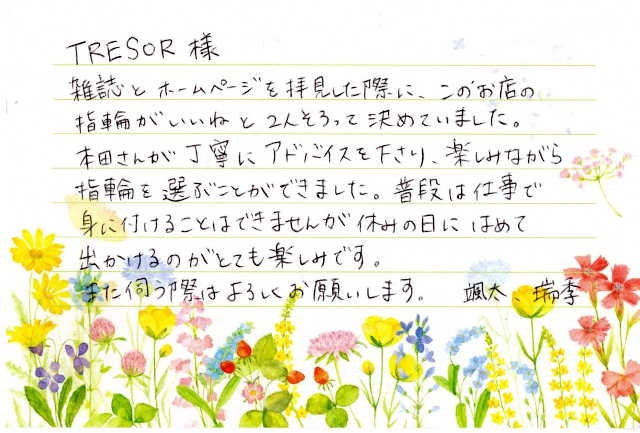 TRESOR 様
雑誌とホームページを拝見した際に、このお店の
指輪がいいねと2人そろって決めていました。
本田さんが丁寧にアドバイスを下さり、楽しみながら
指輪を選ぶことができました。普段は仕事で
身に付けることはできませんが休みの日にはめて
出かけるのがとても楽しみです。
また伺う際はよろしくお願いします。 颯太、瑞季